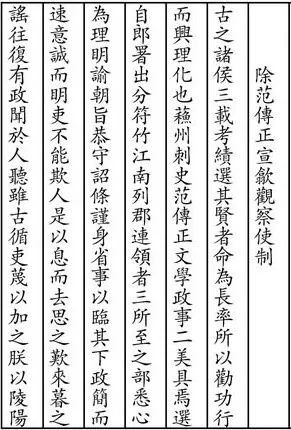 除范傳正宣歙觀察使制
古之諸侯三載考績選其賢者命為長率所以勸功行
而興理化也蘓州刺史范傳正文學政事二美具焉選
自郎署出分符竹江南列郡連領者三所至之部悉心
為理明諭朝旨恭守詔條謹身省事以臨其下政簡而
速意誠而明吏不能欺人是以息而去思之歎來暮之
謠往復有政聞於人聽雖古循吏蔑以加之朕以陵陽